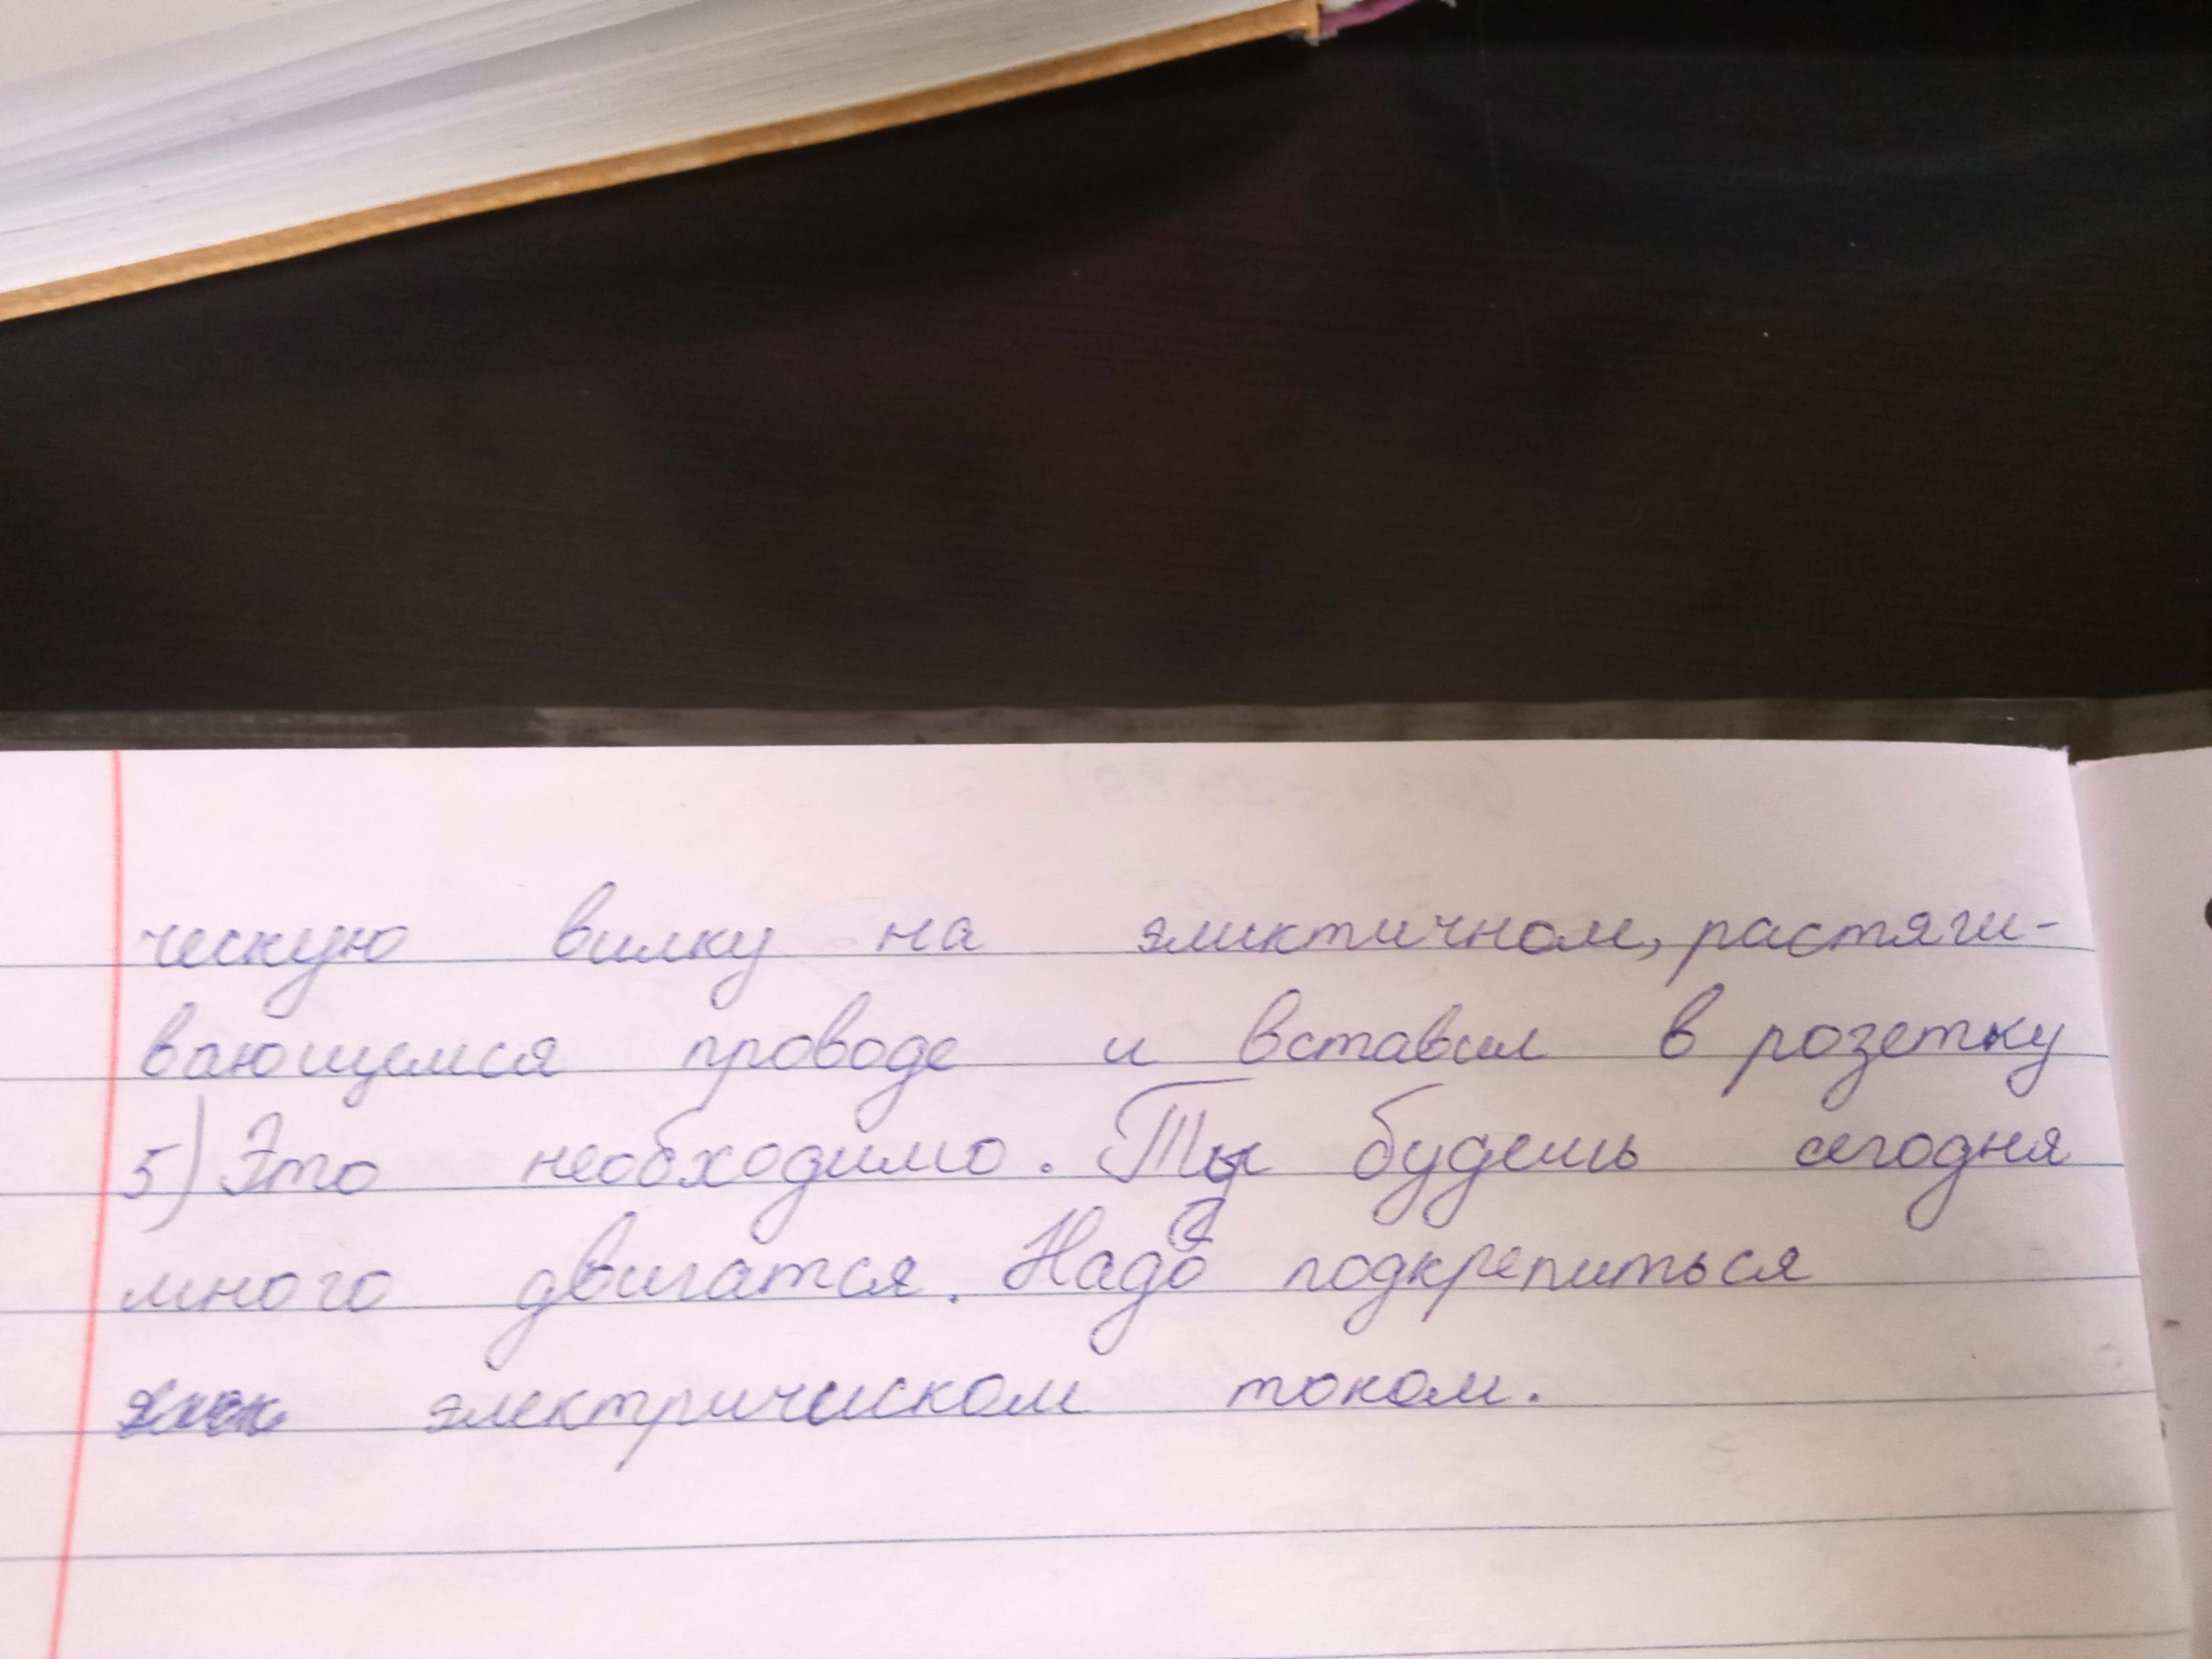 ческую вилку на эликтичном, растяги-
вающемся проводе и вставил в розетку
5) Это необходимо. Ты будешь сегодня
много двигатся. Надо подкрепиться
электрическом током.